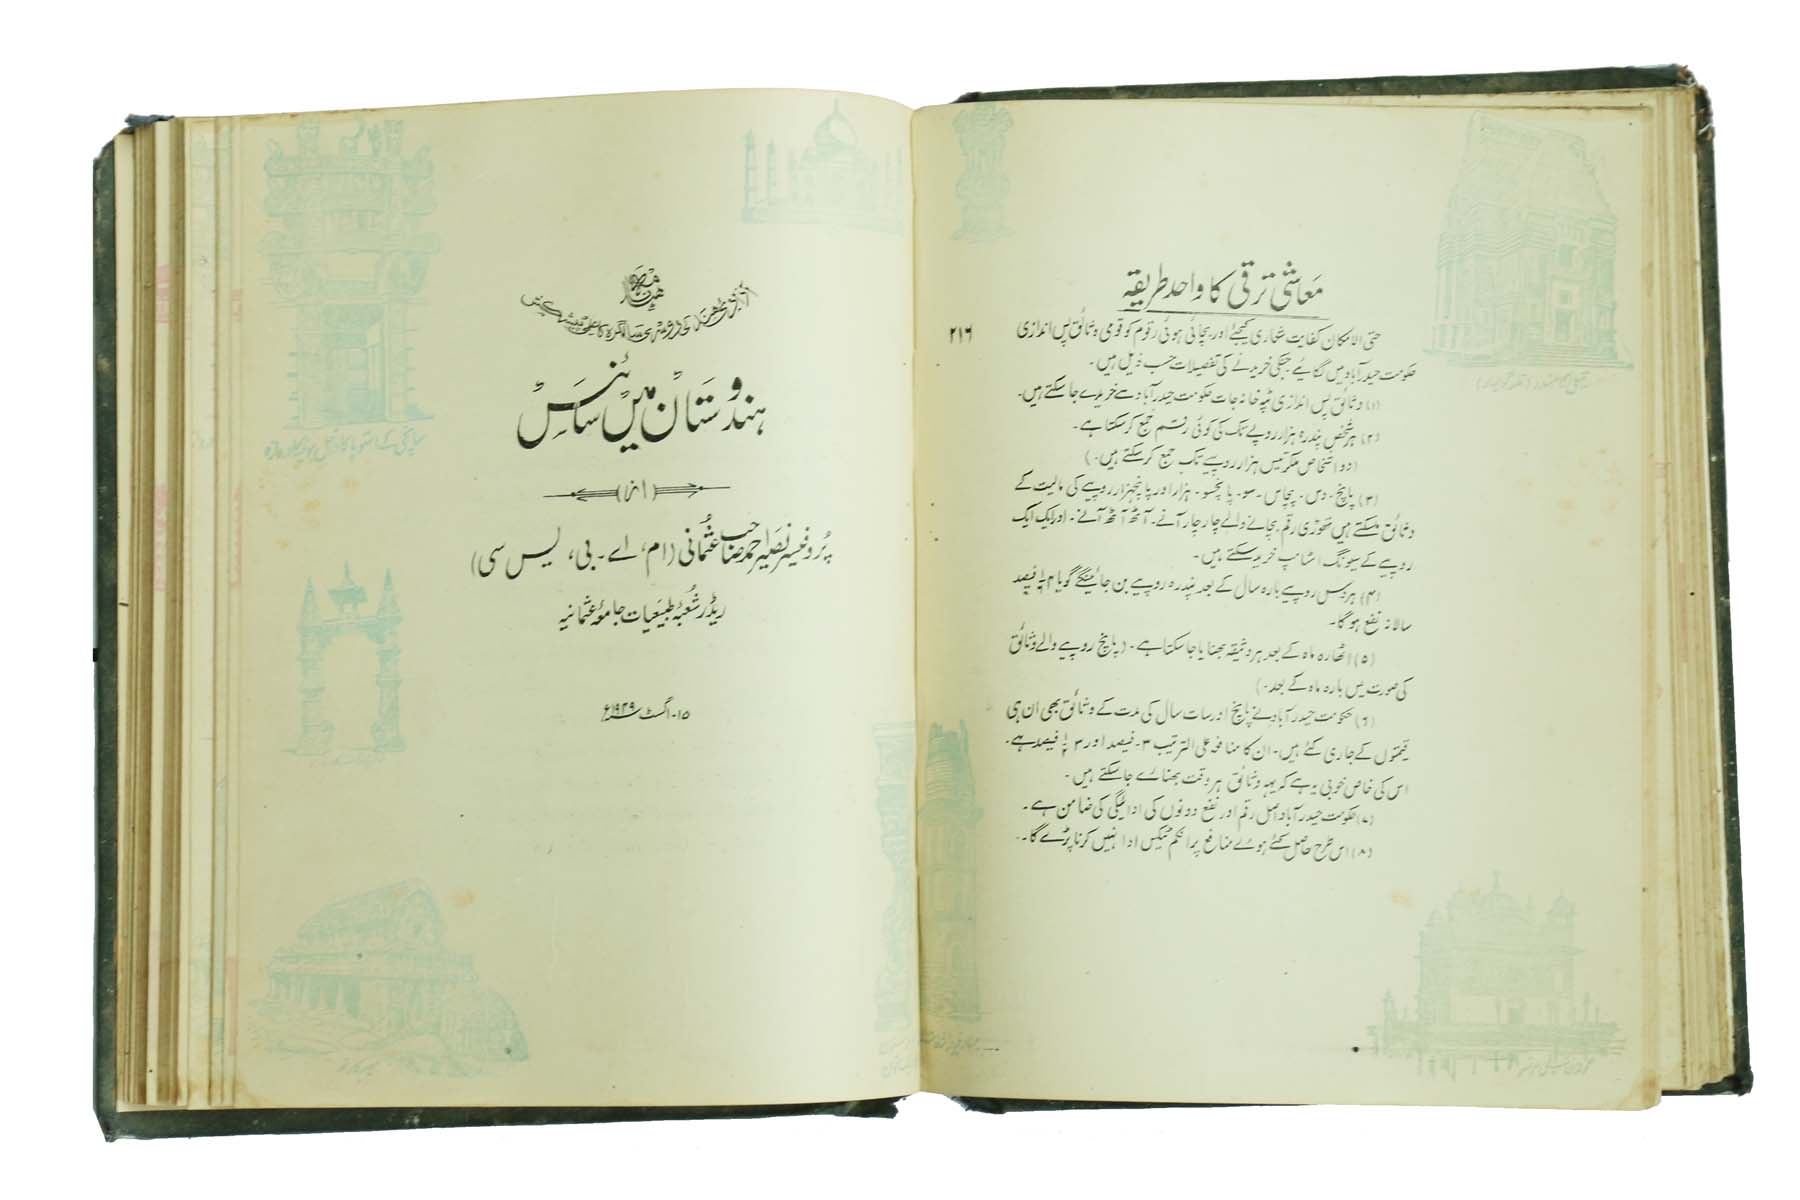 معاشی ترقی کا واحد طریقہ
۲۱۶
حتی الامکان کفایت شعاری کیجئے اور بچائی ہوئی رقوم کو قومی وثائق پس اندازی
حکومت حیدرآباد میں لگائیے جنکی خریدنے کی تفصیلات حسب ذیل ہیں۔
(۱) وثائق پس اندازی ٹپہ خانہ جات حکومت حیدرآباد سے خریدے جا سکتے ہیں۔
(۲) ہر شخص پندرہ ہزار روپے تک کی کوئی رقم جمع کر سکتا ہے۔
(دو اشخاص ملکر تیس ہزار روپیے تک جمع کر سکتے ہیں۔)
(۳) پانچ۔ دس۔ پچاس۔ سو۔ پانچسو۔ ہزار اور پانچہزار روپیے کی مالیت کے
وثائق ملسکتے ہیں تھوڑی رقم بچانے والے چار چار آنے۔ آٹھ آٹھ آنے۔ اور ایک ایک
روپیے کے سیونگ اسٹامپ خرید سکتے ہیں۔
(۴) ہر دس روپیے بارہ سال کے بعد پندرہ روپیے بن جائینگے گویا ۴ ۱/۶ فیصد
سالانہ نفع ہوگا۔
(۵) اٹھارہ ماہ کے بعد ہر وثیقہ بھنایا جا سکتا ہے۔ (پانچ روپیے والے وثائق
کی صورت میں بارہ ماہ کے بعد۔)
(۶) حکومت حیدرآباد نے پانچ اور سات سال کی مدت کے وثائق بھی ان ہی
قیمتوں کے جاری کئے ہیں۔ ان کا منافعہ علی الترتیب ۳۔ فیصد اور ۳ ۱/۲ فیصد ہے۔
اس کی خاص خوبی یہ ہے کہ یہہ وثائق ہر وقت بھنائے جا سکتے ہیں۔
(۷) حکومت حیدرآباد اصل رقم اور نفع دونوں کی ادائیگی کی ضامن ہے۔
(۸) اس طرح حاصل کئے ہوئے منافع پر انکم ٹیکس ادا نہیں کرنا پڑے گا۔
کی دوسری سالگرہ کا علمی پیشکش
ہندوستان میں سائنس
(از)
پروفیسر نصیر احمد صاحب عثمانی (ام، اے۔ بی، یس سی)
ریڈر شعبۂ طبیعیات جامعۂ عثمانیہ
۱۵۔ اگست ۱۹۴۹ء